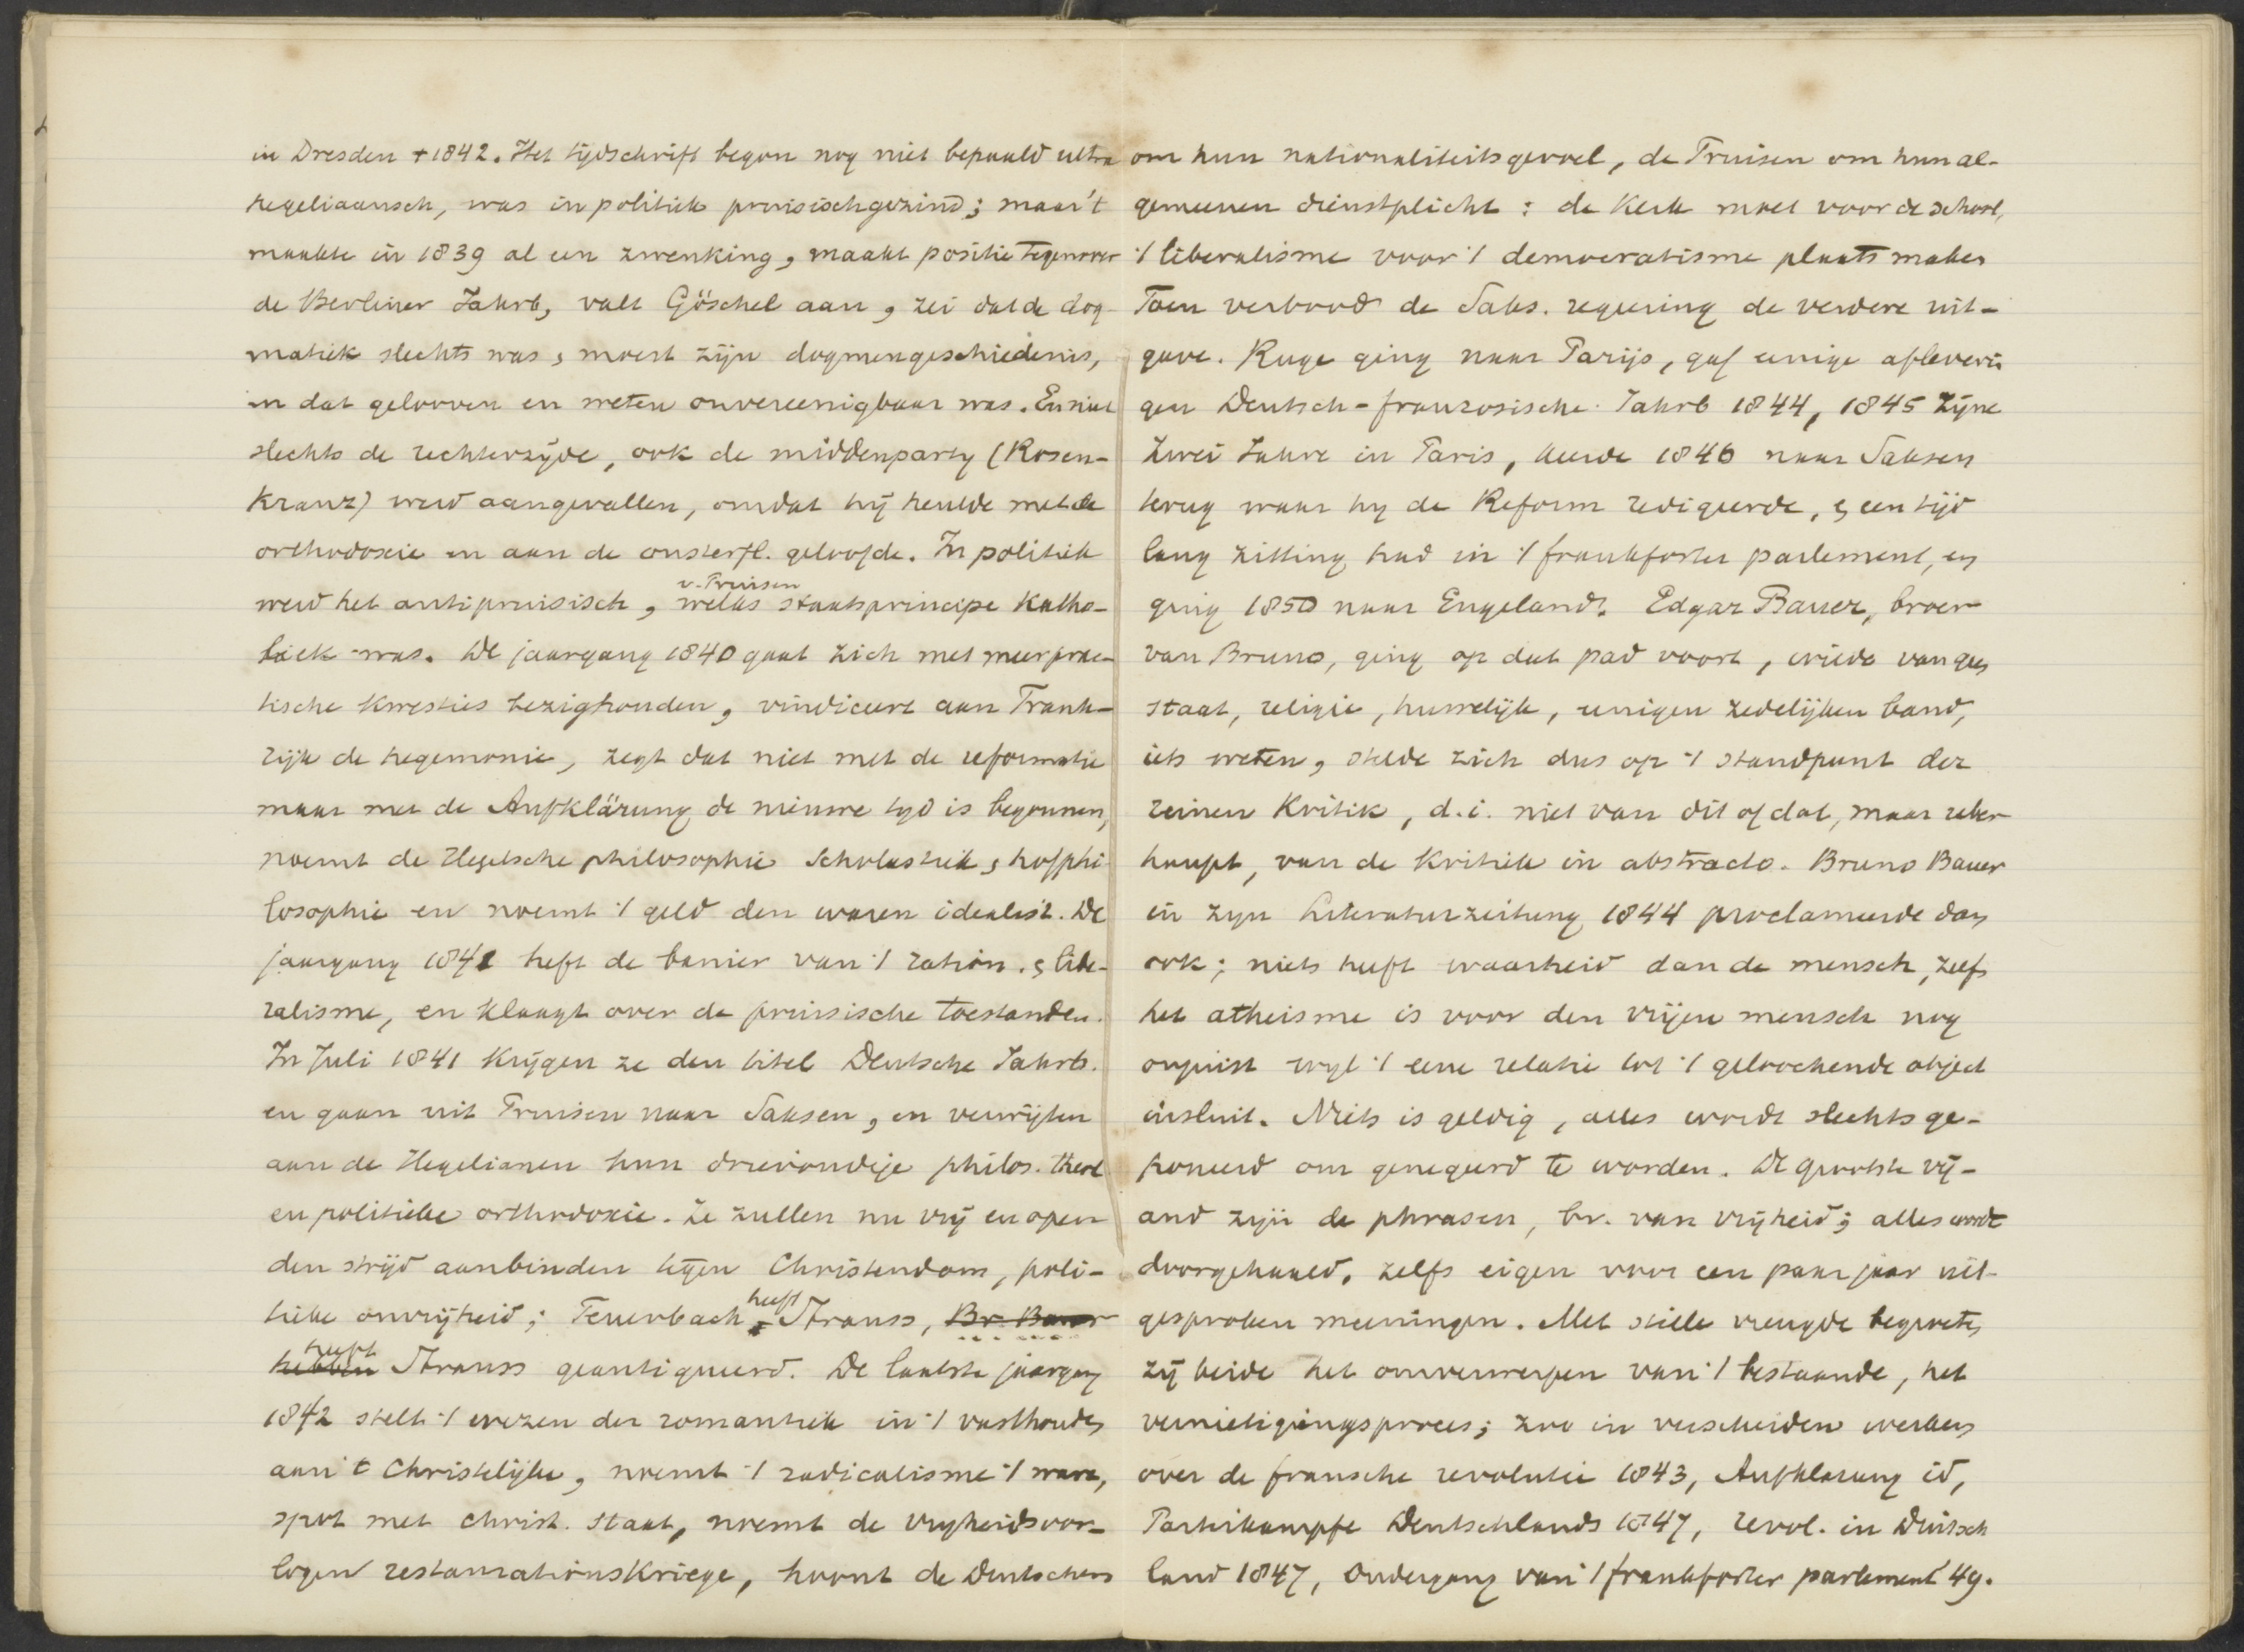 in Dresden † 1842. Het tijdschrift begon nog niet bepaald ultra
hegeliaansch, was in politiek pruisischgezind; maar 't
maakte in 1839 al een zwenking, maakt positie tegenover
de Berliner Jahrb, valt Göschel aan, zei dat de dog-
matiek slechts was, moest zijn dogmengeschiedenis,
en dat gelooven en weten onvereenigbaar was. En niet
slechts de rechterzijde, ook de middenparty (Rosen-
kranz) werd aangevallen, omdat hij heulde met de
orthodoxie en aan de onsterfl. geloofde. In politiek
v. Pruisen
werd het antipruisisch, welks staatsprincipe katho-
liek was. De jaargang 1840 gaat zich met meer prac-
tische kwesties bezighouden, vindiceert aan Frank-
rijk de hegemonie, zegt dat niet met de reformatie
maar met de Aufklärung de nieuwe tyd is begonnen,
noemt de Hegelsche philosophie Scholastiek, hofphi-
losophie en noemt 't geld den waren idealist. De
jaargang 1841 heft de banier van 't ration. & libe-
ralisme, en klaagt over de pruisische toestanden.
In Juli 1841 krijgen ze den titel Deutsche Jahrb.
en gaan uit Pruisen naar Saksen, en verwijten
aan de Hegelianen hun drievoudige philos. theol
en politieke orthodoxie. Ze zullen nu vrij en open
den strijd aanbinden tegen Christendom, poli-
heeft
tieke onvrijheid; Feuerbach Strauss, Br. Bauer
heeft
hebben Strauss geantiqueerd. De laatste jaargang
1842 stelt 't wezen der romantiek in 't vasthouden
aan 't Christelijke, noemt 't radicalisme 't ware,
spot met christ. staat, noemt de vryheidsoor-
logen restaurationskriege, hoont de Duitschers
om hun nationaliteitsgevoel, de Pruisen om hun al-
gemeenen dienstplicht: de kerk moet voor de school,
't liberalisme voor 't democratisme plaats maken
Toen verbood de Saks. regeering de verdere uit-
gave. Ruge ging naar Parijs, gaf eenige afleverin
gen Deutsch-französische Jahrb 1844, 1845 Zijne
Zwei Jahre in Paris, keerde 1846 naar Saksen
terug waar hy de Reform redigeerde, & een tijd
lang zitting had in 't frankforter parlement, en
ging 1850 naar Engeland. Edgar Bauer, broer
van Bruno, ging op dat pad voort, wilde van geen
staat, religie, huwelijk, eenigen zedelijken band,
iets weten, stelde zich dus op 't standpunt der
reinen Kritik, d.i. niet van dit of dat, maar ueber-
haupt, van de kritiek in abstracto. Bruno Bauer
in zyn Literaturzeitung 1844 proclameerde dan
ook; niets heeft waarheid dan de mensch, zelfs
het atheisme is voor den vrijen mensch nog
onjuist wyl 't eene relatie tot 't geloochende object
insluit. Niets is geldig, alles wordt slechts ge-
poneerd om genegeerd te worden. De grootste vij-
and zijn de phrasen, bv. van vrijheid; alles wordt
doorgehaald, zelfs eigen voor een paar jaar uit-
gesproken meeningen. Met stille vreugde begroeten
zij beide het omverwerpen van 't bestaande, het
vernietigingsproces; zoo in verscheiden werken
over de fransche revolutie 1843, Aufklarung id,
Parteikampfe Deutschlands 1847, revol. in Duitsch
land 1847, Ondergang van 't frankforter parlement 49.